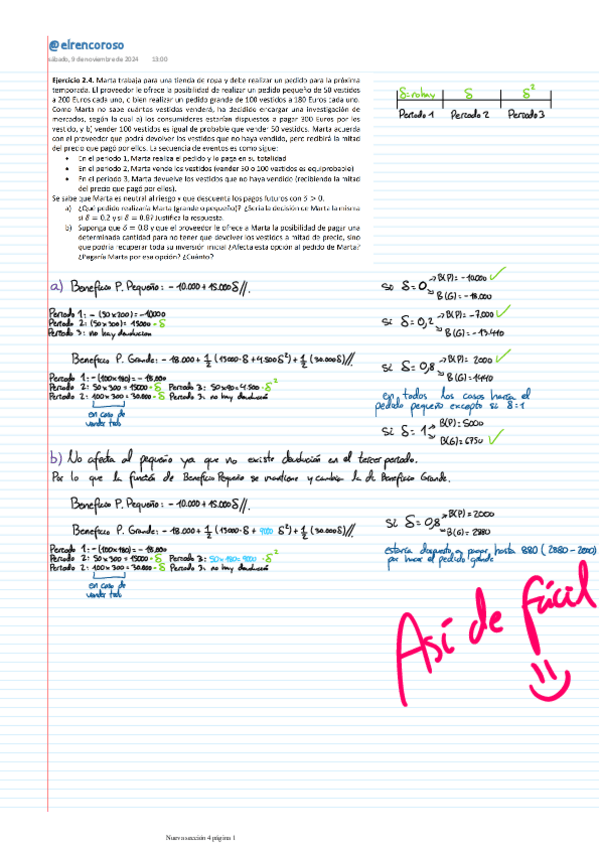 @elrencoroso
sábado, 9 de noviembre de 2024 13:00
Ejercicio 2.4. Marta trabaja para una tienda de ropa y debe realizar un pedido para la próxima
temporada. El proveedor le ofrece la posibilidad de realizar un pedido pequeño de 50 vestidos
a 200 Euros cada uno, o bien realizar un pedido grande de 100 vestidos a 180 Euros cada uno.
Como Marta no sabe cuántos vestidos venderá, ha decidido encargar una investigación de
mercados, según la cual a) los consumidores estarían dispuestos a pagar 300 Euros por los
vestido, y b) vender 100 vestidos es igual de probable que vender 50 vestidos. Marta acuerda
con el proveedor que podrá devolver los vestidos que no haya vendido, pero recibirá la mitad
del precio que pagó por ellos. La secuencia de eventos es como sigue:
• En el periodo 1, Marta realiza el pedido y lo paga en su totalidad
• En el periodo 2, Marta vende los vestidos (vender 50 o 100 vestidos es equiprobable)
• En el periodo 3, Marta devuelve los vestidos que no haya vendido (recibiendo la mitad
del precio que pagó por ellos).
Se sabe que Marta es neutral al riesgo y que descuenta los pagos futuros con δ > 0.
a) ¿Qué pedido realizaría Marta (grande o pequeño)? ¿Sería la decisión de Marta la misma
si δ = 0.2 y si δ = 0.8? Justifica la respuesta.
b) Suponga que δ = 0.8 y que el proveedor le ofrece a Marta la posibilidad de pagar una
determinada cantidad para no tener que devolver los vestidos a mitad de precio, sino
que podría recuperar toda su inversión inicial ¿Afecta esta opción al pedido de Marta?
¿Pagaría Marta por esa opción? ¿Cuánto?
δ=no hay δ δ²
Periodo 1 Periodo 2 Periodo 3
a) Beneficio P. Pequeño: - 10.000 + 15.000δ//.
Periodo 1: - (50x200) = -10000
Periodo 2: (50x300) = 15000 · δ
Periodo 3: no hay devolucion
Beneficio P. Grande: - 18.000 + 1/2 (15000·δ + 4.500δ²) + 1/2 (30.000δ)//.
Periodo 1: - (100x180) = - 18.000
Periodo 2: 50x300 = 15000 · δ Periodo 3: 50x90 = 4.500 · δ²
Periodo 2: 100x300 = 30.000 · δ Periodo 3: no hay devolució
en caso de
vender todo
si δ=0 B(P)= -10000 ✓
B(G)= -18.000
si δ=0,2 B(P)= -7.000 ✓
B(G)= -13.410
si δ=0,8 B(P)= 2000 ✓
B(G)= 1440
en todos los casos haria el
pedido pequeño excepto si δ=1
si δ=1 B(P)= 5000
B(G)= 6750 ✓
b) No afecta al pequeño ya que no existe devolución en el tercer periodo.
Por lo que la función de Beneficio Pequeño se mantiene y cambia la de Beneficio Grande.
Beneficio P. Pequeño: - 10.000 + 15.000δ//.
Beneficio P. Grande: - 18.000 + 1/2 (15000·δ + 9000 δ²) + 1/2 (30.000δ)//.
Periodo 1: - (100x180) = - 18.000
Periodo 2: 50x300 = 15000 · δ Periodo 3: 50x180 = 9000 · δ²
Periodo 2: 100x300 = 30.000 · δ Periodo 3: no hay devolució
en caso de
vender todo
si δ=0,8 B(P)= 2000
B(G)= 2880
estaría dispuesto a pagar hasta 880 (2880 - 2000)
por hacer el pedido grande
Así de fácil
Nueva sección 4 página 1